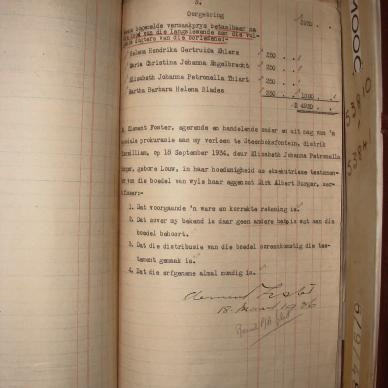 3.
Oorgebring
bemaakprys betaalbaar na
die langslewende aan die vol-
gende dogters van die oorledene:-
Helena Hendrika Gertruida Ehlers £ 250 . .
Maria Christina Johanna Engelbrecht £ 250 . .
Elizabeth Johanna Petronella Thiart £ 250 . .
Martha Barbara Helena Blades £ 250 . . 1000 . .
Clement Foster, agerende en handelende onder en uit mag van 'n
spesiale prokurasie aan my verleen te Steenboksfontein, distrik
op 18 September 1934, deur Elizabeth Johanna Petronella
Burger, gebore Louw, in haar hoedanigheid as eksekutrise testamen-
van die boedel van wyle haar eggenoot Dirk Albert Burger, ser-
tifiseer:-
1. Dat voorgaande 'n ware en korrekte rekening is.
2. Dat sover my bekend is daar geen andere bate is wat aan die
boedel behoort.
3. Dat die distribusie van die boedel ooreenkomstig die tes-
tament gemaak is.
4. Dat die erfgename almal mondig is.
Clement Foster
18 Maart 1936
MOOC